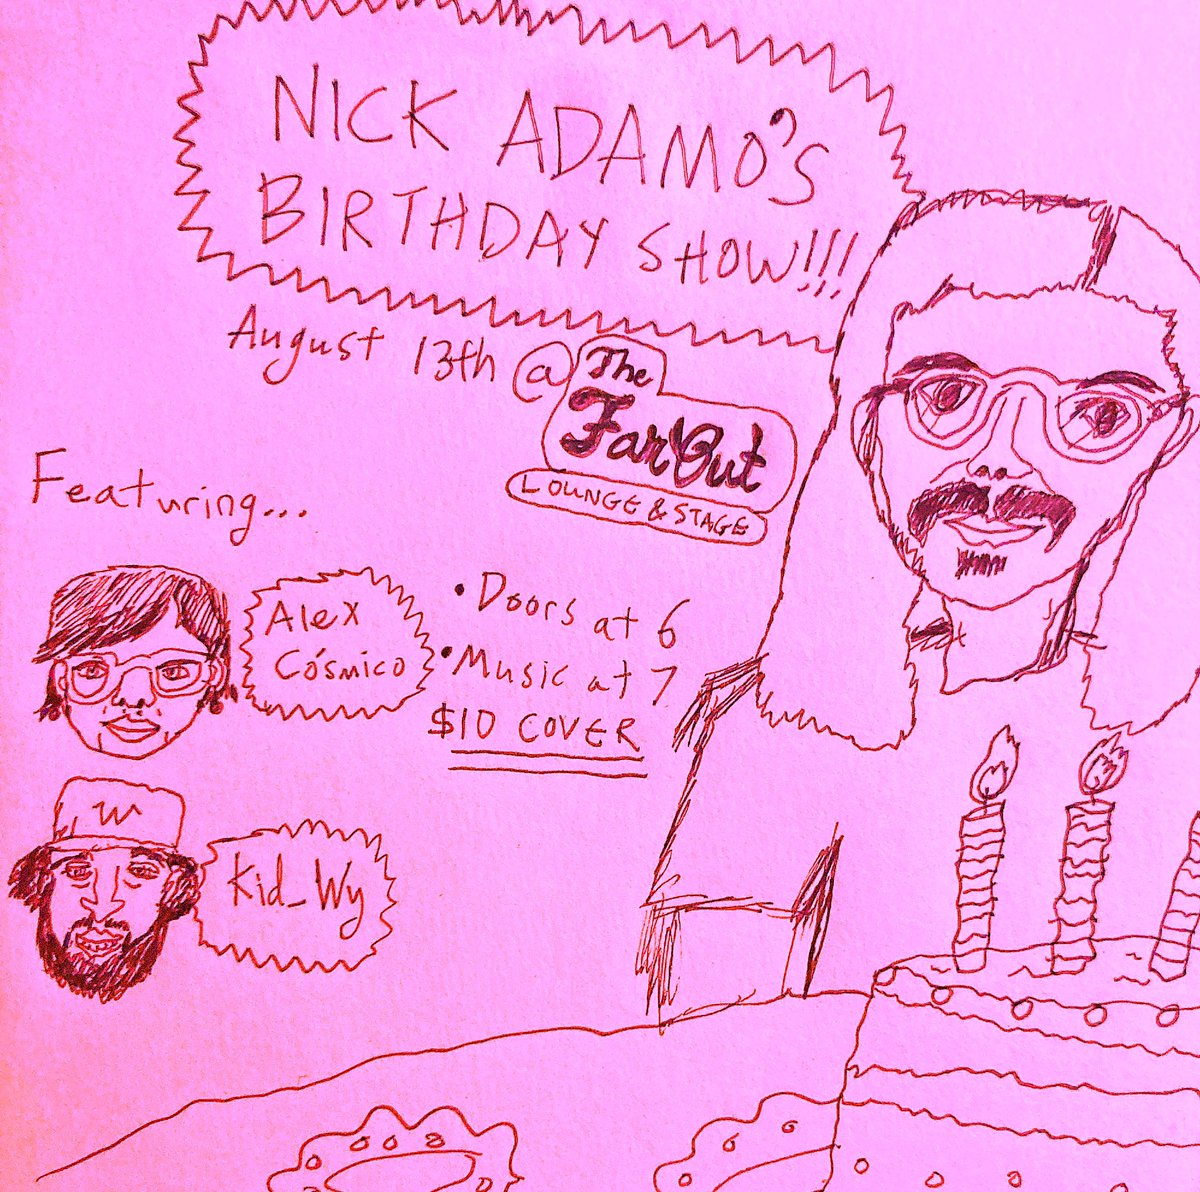 NICK ADAMO'S
BIRTHDAY SHOW!!!
August 13th @
The
Far Out
LOUNGE & STAGE
Featuring...
Alex
Cósmico
• Doors at 6
• Music at 7
$10 COVER
W
Kid_Wy